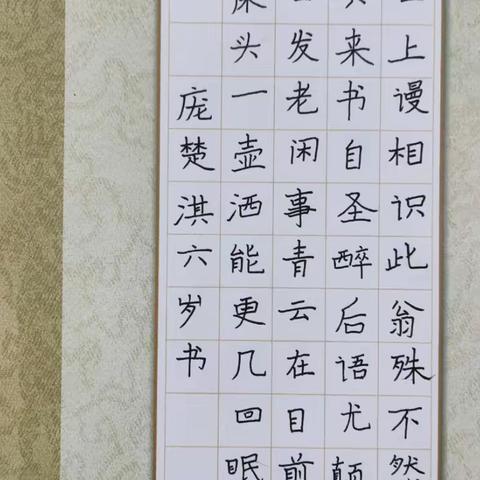 上谩相识此翁殊不然
来书自圣醉后语尤颠
发老闲事青云在目前
床头一壶洒能更几回眠
庞楚淇六岁书